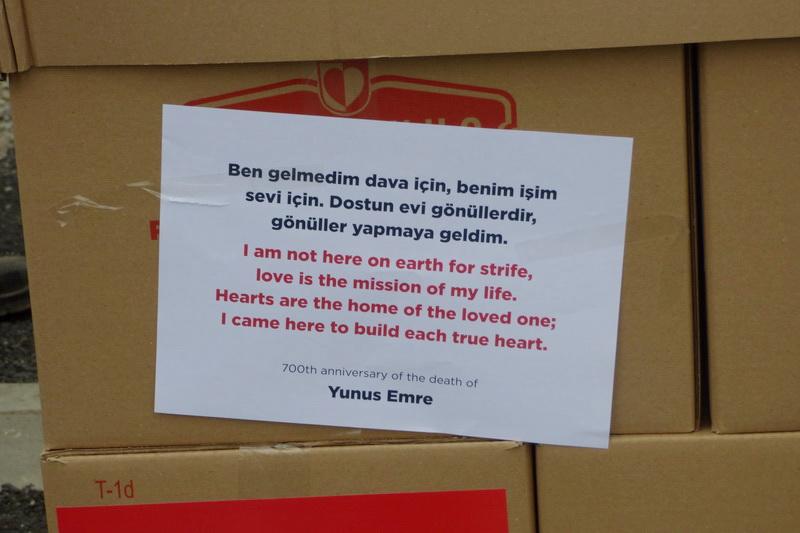 Ben gelmedim dava için, benim işim
sevi için. Dostun evi gönüllerdir,
gönüller yapmaya geldim.
I am not here on earth for strife,
love is the mission of my life.
Hearts are the home of the loved one;
I came here to build each true heart.
700th anniversary of the death of
Yunus Emre
T-1d